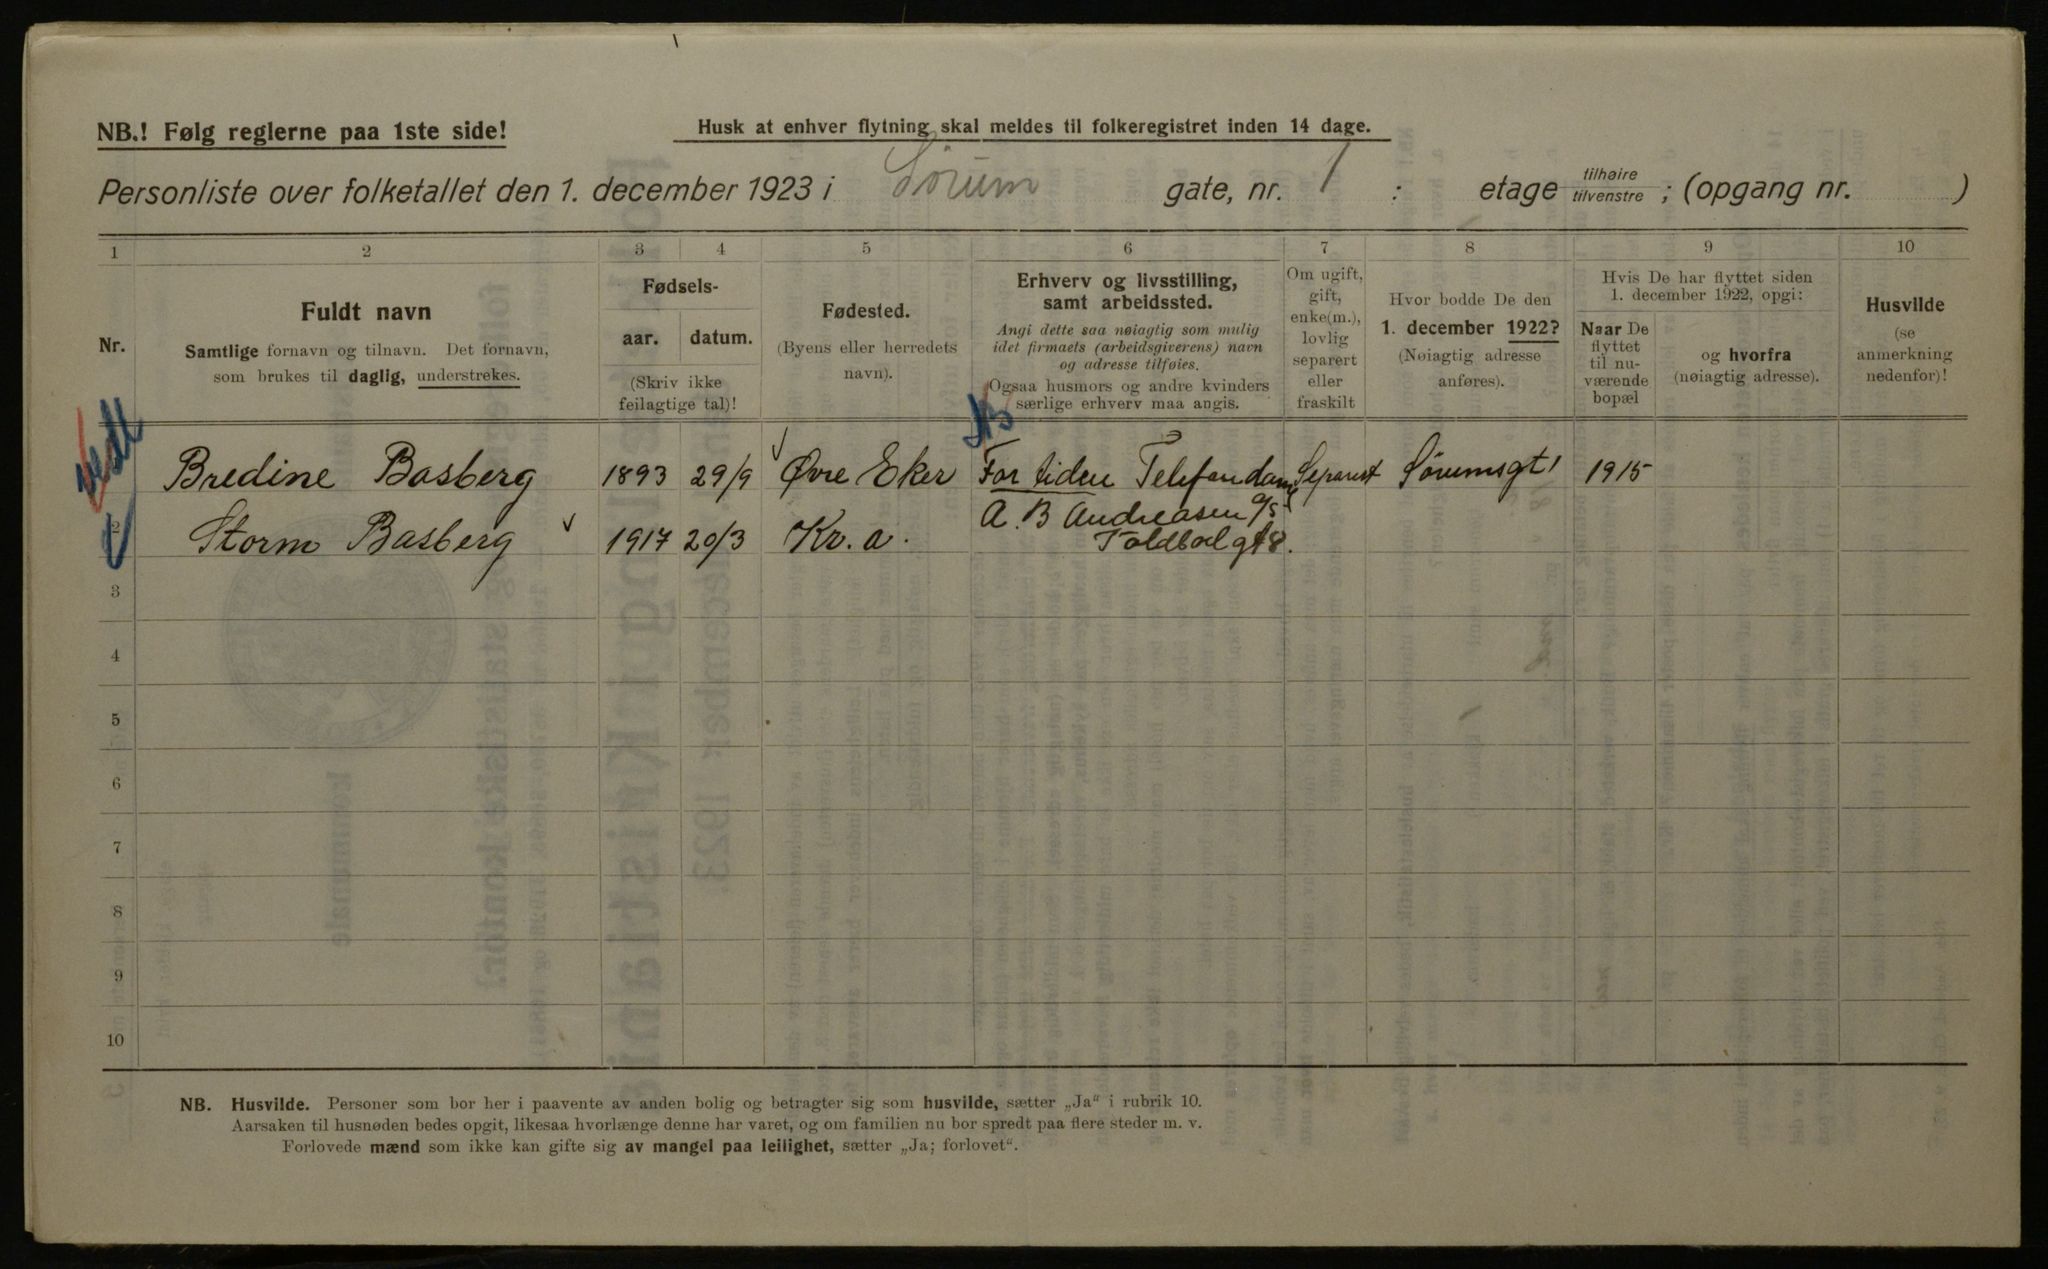 NB.! Følg reglerne paa 1ste side!
Husk at enhver flytning skal meldes til folkeregistret inden 14 dage.
Personliste over folketallet den 1. december 1923 i Sörum gate, nr. 1 : etage tilhøire tilvenstre ; (opgang nr. )
1 2 3 4 5 6 7 8 9 10
Nr.
Fuldt navn
Samtlige fornavn og tilnavn. Det fornavn,
som brukes til daglig, understrekes.
Fødsels-
aar. datum.
(Skriv ikke
feilagtige tal)!
Fødested.
(Byens eller herredets
navn).
Erhverv og livsstilling,
samt arbeidssted.
Angi dette saa nøiagtig som mulig
idet firmaets (arbeidsgiverens) navn
og adresse tilføies.
Ogsaa husmors og andre kvinders
særlige erhverv maa angis.
Om ugift,
gift,
enke(m.),
lovlig
separert
eller
fraskilt
Hvor bodde De den
1. december 1922?
(Nøiagtig adresse
anføres).
Hvis De har flyttet siden
1. december 1922, opgi:
Naar De
flyttet
til nu-
værende
bopæl
og hvorfra
(nøiagtig adresse).
Husvilde
(se
anmerkning
nedenfor)!
Bredine Basberg 1893 29/9 Øvre Eker For tiden Telefondame Separert Sörumsgt 1 1915
A. B Andreasen A/S
2 Storm Basberg 1917 20/3 Kr. a. Toldbodgt 8.
3
4
5
6
7
8
9
10
NB. Husvilde. Personer som bor her i paavente av anden bolig og betragter sig som husvilde, sætter „Ja“ i rubrik 10.
Aarsaken til husnøden bedes opgit, likesaa hvorlænge denne har varet, og om familien nu bor spredt paa flere steder m. v.
Forlovede mænd som ikke kan gifte sig av mangel paa leilighet, sætter „Ja; forlovet“.